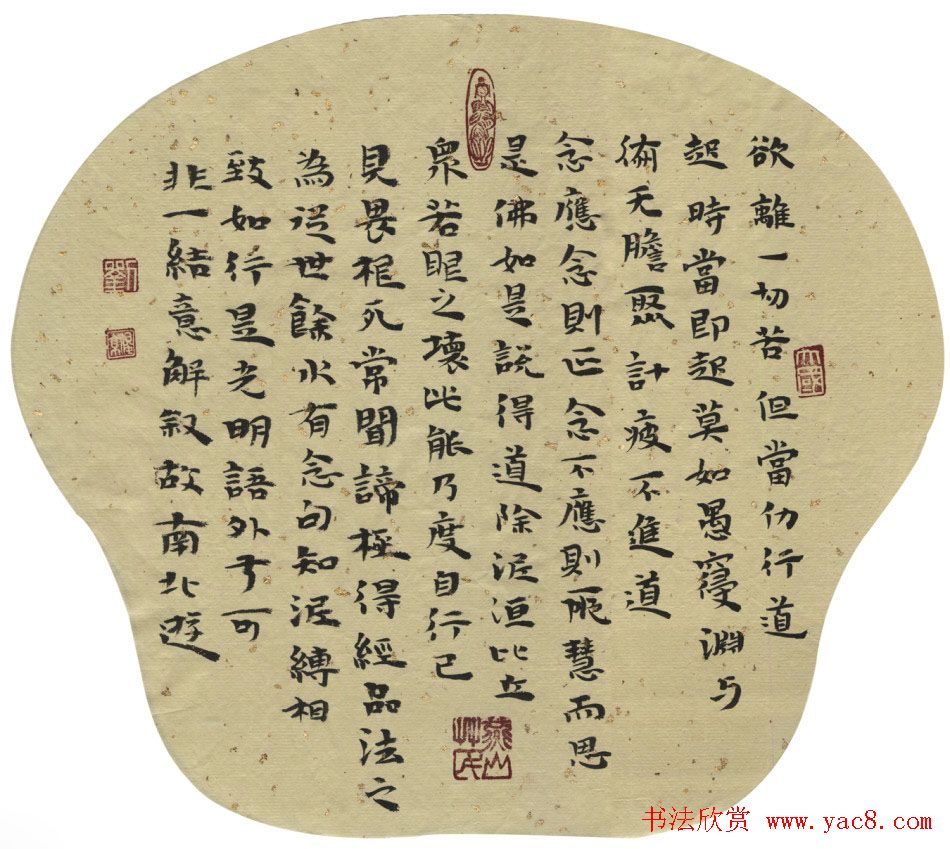 欲離一切苦但當仂行道
起時當即起莫如愚寑淵与
墮无瞻聚計疲不進道
念應念則正念不應則邪慧而思
是佛如是説得道除泥洹比丘
衆若眼之壞此能乃度自行已
見畏柅死常聞諦極得經品法之
為從世餘水有念句知泥縛相
致如行是光明語外于可
非一結意解叙故南北遊
燕山
书法欣赏 www.yac8.com